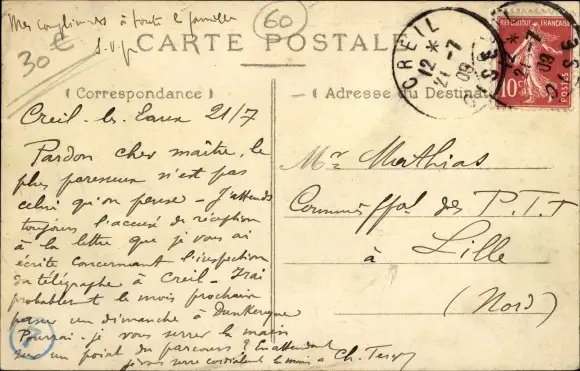 Mes compliments à toute la famille
S.V.p.
60
30
CARTE POSTALE
RÉPUBLIQUE FRANÇAISE
10c
CREIL
12 * 21 -7 09
OISE
( Correspondance )
Creil-les-Eaux 21/7
Pardon cher maître, le
plus paresseux n'est pas
celui qu'on pense - J'attends
toujours l'accusé de réception
à la lettre que je vous ai
écrite concernant l'inspection
du télégraphe à Creil - J'irai
probablemt le mois prochain
passer un dimanche à Dunkerque
Pourrai-je vous serrer la main
sur un point du parcours ? En attendant
je vous serre cordialemt la main
( Adresse du Destinat
Mr Mathias
des P.T.T
à Lille
(Nord)